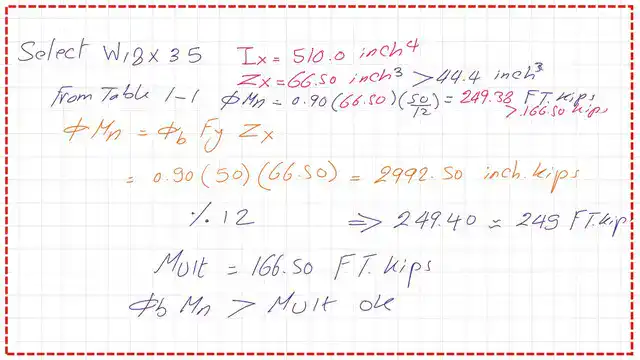 Select W18x35 Ix = 510.0 inch⁴
Zx = 66.50 inch³ > 44.4 inch³
From Table 1-1 ϕMn = 0.90(66.50)(50/12) = 249.38 FT. kips
> 166.50 kips
ϕMn = ϕb Fy Zx
= 0.90(50)(66.50) = 2992.50 inch.kips
% 12 ⇒ 249.40 ≈ 249 FT.kip
Mult = 166.50 FT. kips
ϕb Mn > Mult ok